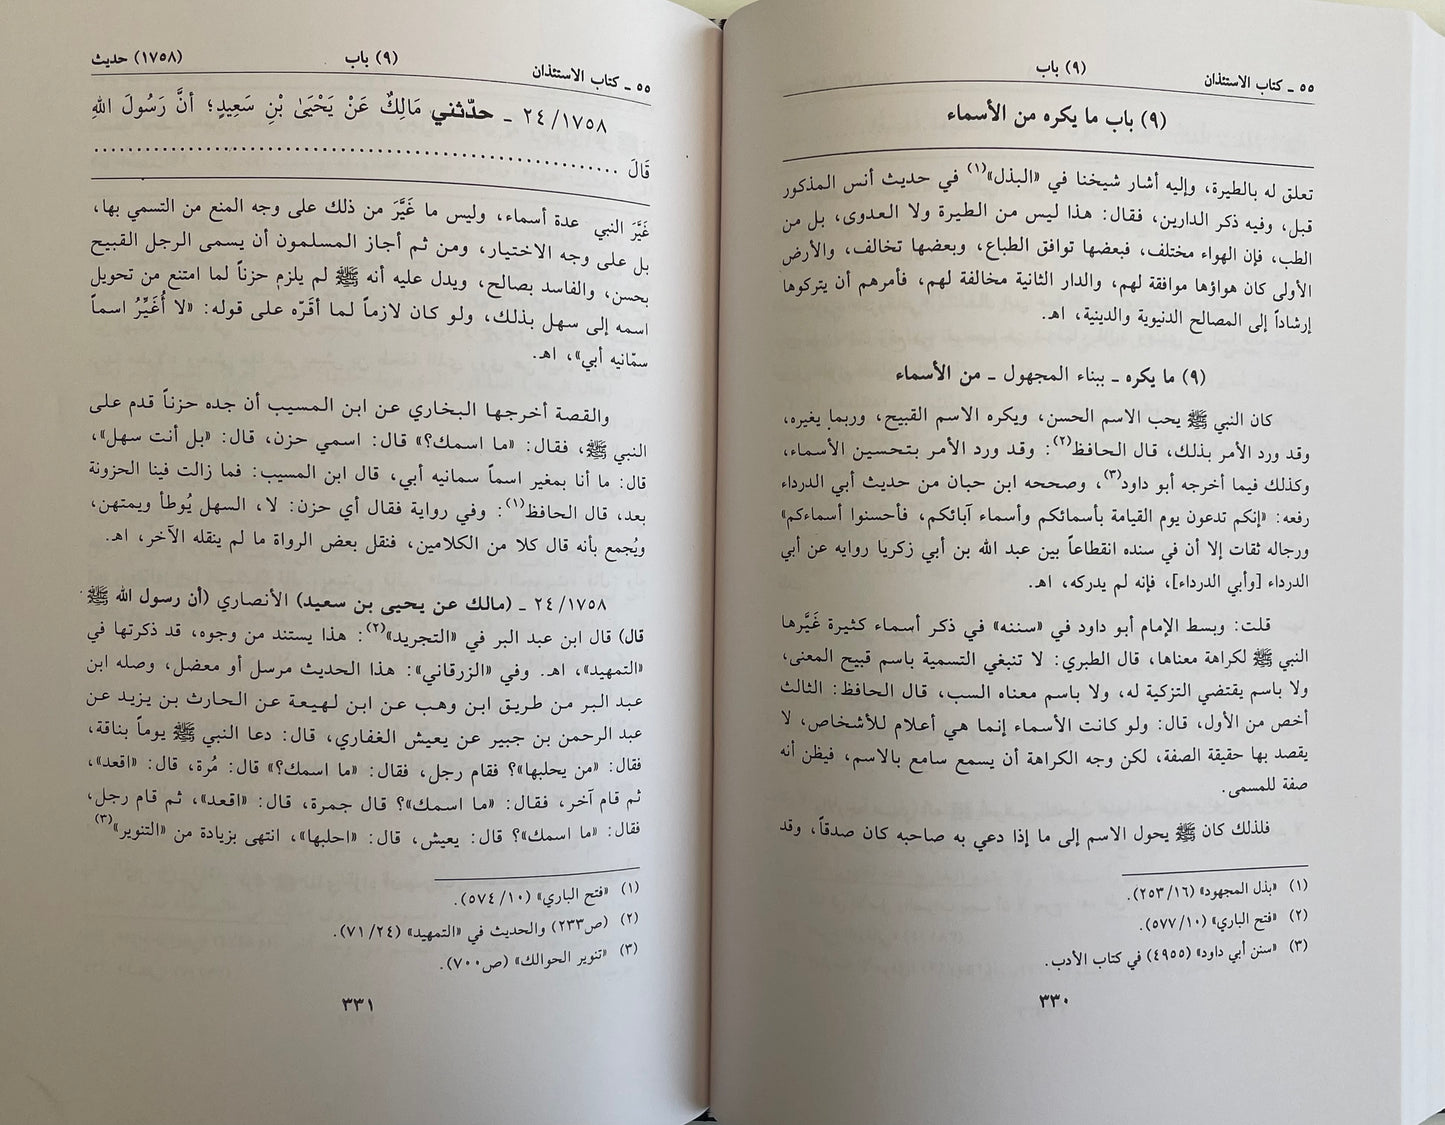 ٥٥ ـ كتاب الاستئذان
(٩) باب
(٩) باب ما يكره من الأسماء
تعلق له بالطيرة، وإليه أشار شيخنا في «البذل»(١) في حديث أنس المذكور
قبل، وفيه ذكر الدارين، فقال: هذا ليس من الطيرة ولا العدوى، بل من
الطب، فإن الهواء مختلف، فبعضها توافق الطباع، وبعضها تخالف، والأرض
الأولى كان هواؤها موافقة لهم، والدار الثانية مخالفة لهم، فأمرهم أن يتركوها
إرشاداً إلى المصالح الدنيوية والدينية، اهـ.
(٩) ما يكره ـ ببناء المجهول ـ من الأسماء
كان النبي ﷺ يحب الاسم الحسن، ويكره الاسم القبيح، وربما يغيره،
وقد ورد الأمر بذلك، قال الحافظ(٢): وقد ورد الأمر بتحسين الأسماء،
وكذلك فيما أخرجه أبو داود(٣)، وصححه ابن حبان من حديث أبي الدرداء
رفعه: «إنكم تدعون يوم القيامة بأسمائكم وأسماء آبائكم، فأحسنوا أسماءكم»
ورجاله ثقات إلا أن في سنده انقطاعاً بين عبد الله بن أبي زكريا روايه عن أبي
الدرداء [وأبي الدرداء]، فإنه لم يدركه، اهـ.
قلت: وبسط الإمام أبو داود في «سننه» في ذكر أسماء كثيرة غَيَّرها
النبي ﷺ لكراهة معناها، قال الطبري: لا تنبغي التسمية باسم قبيح المعنى،
ولا باسم يقتضي التزكية له، ولا باسم معناه السب، قال الحافظ: الثالث
أخص من الأول، قال: ولو كانت الأسماء إنما هي أعلام للأشخاص، لا
يقصد بها حقيقة الصفة، لكن وجه الكراهة أن يسمع سامع بالاسم، فيظن أنه
صفة للمسمى.
فلذلك كان ﷺ يحول الاسم إلى ما إذا دعي به صاحبه كان صدقاً، وقد
(١) «بذل المجهود» (٢٥٣/١٦).
(٢) «فتح الباري» (٥٧٧/١٠).
(٣) «سنن أبي داود» (٤٩٥٥) في كتاب الأدب.
٣٣٠
٥٥ ـ كتاب الاستئذان
(٩) باب
(١٧٥٨) حديث
٢٤/١٧٥٨ ـ حدّثني مَالِكٌ عَنْ يَحْيَىٰ بْنِ سَعِيدٍ؛ أنَّ رَسُولَ اللهِ
قَالَ ......................................................
غَيَّرَ النبي عدة أسماء، وليس ما غَيَّرَ من ذلك على وجه المنع من التسمي بها،
بل على وجه الاختيار، ومن ثم أجاز المسلمون أن يسمى الرجل القبيح
بحسن، والفاسد بصالح، ويدل عليه أنه ﷺ لم يلزم حزناً لما امتنع من تحويل
اسمه إلى سهل بذلك، ولو كان لازماً لما أقَرّه على قوله: «لا أُغَيِّرُ اسماً
سمّانيه أبي»، اهـ.
والقصة أخرجها البخاري عن ابن المسيب أن جده حزناً قدم على
النبي ﷺ، فقال: «ما اسمك؟» قال: اسمي حزن، قال: «بل أنت سهل»،
قال: ما أنا بمغير اسماً سمانيه أبي، قال ابن المسيب: فما زالت فينا الحزونة
بعد، قال الحافظ(١): وفي رواية فقال أي حزن: لا، السهل يُوطأ ويمتهن،
ويُجمع بأنه قال كلا من الكلامين، فنقل بعض الرواة ما لم ينقله الآخر، اهـ.
٢٤/١٧٥٨ ـ (مالك عن يحيى بن سعيد) الأنصاري (أن رسول الله ﷺ
قال) قال ابن عبد البر في «التجريد»(٢): هذا يستند من وجوه، قد ذكرتها في
«التمهيد»، اهـ. وفي «الزرقاني»: هذا الحديث مرسل أو معضل، وصله ابن
عبد البر من طريق ابن وهب عن ابن لهيعة عن الحارث بن يزيد عن
عبد الرحمن بن جبير عن يعيش الغفاري، قال: دعا النبي ﷺ يوماً بناقة،
فقال: «من يحلبها»؟ فقام رجل، فقال: «ما اسمك؟» قال: مُرة، قال: «اقعد»،
ثم قام آخر، فقال: «ما اسمك»؟ قال جمرة، قال: «اقعد»، ثم قام رجل،
فقال: «ما اسمك»؟ قال: يعيش، قال: «احلبها»، انتهى بزيادة من «التنوير»(٣)
(١) «فتح الباري» (٥٧٤/١٠).
(٢) (ص٢٣٣) والحديث في «التمهيد» (٧١/٢٤).
(٣) «تنوير الحوالك» (ص٧٠٠).
٣٣١